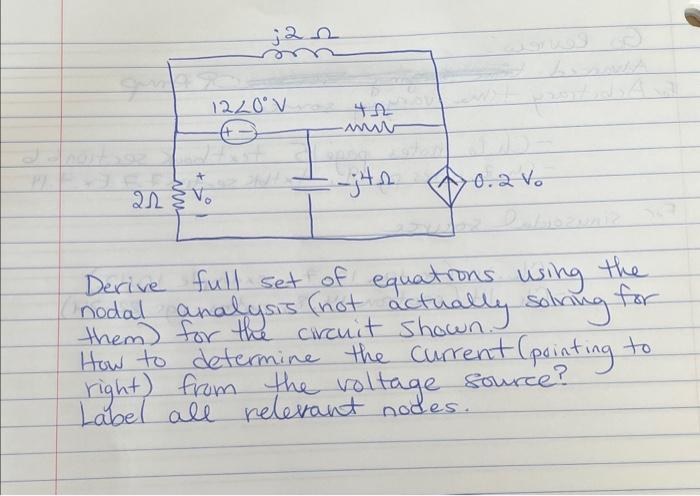 j2 Ω
12∠0° V
4Ω
+ -
2Ω
+
V₀
-
-j4Ω
0.2 V₀
Derive full set of equations using the
nodal analysis (not actually solving for
them) for the circuit shown.
How to determine the current (pointing to
right) from the voltage source?
Label all relevant nodes.